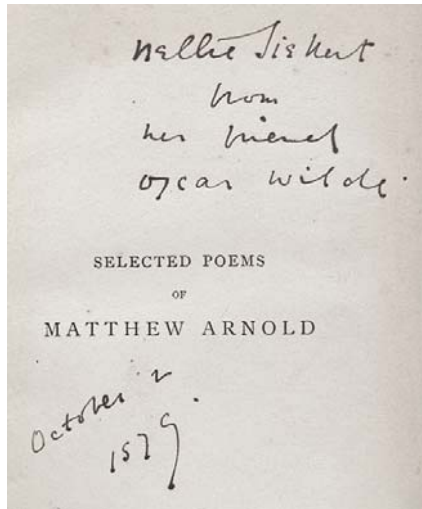 Nellie Sickert
from
her friend
Oscar Wilde.
SELECTED POEMS
OF
MATTHEW ARNOLD
October 2
1879.